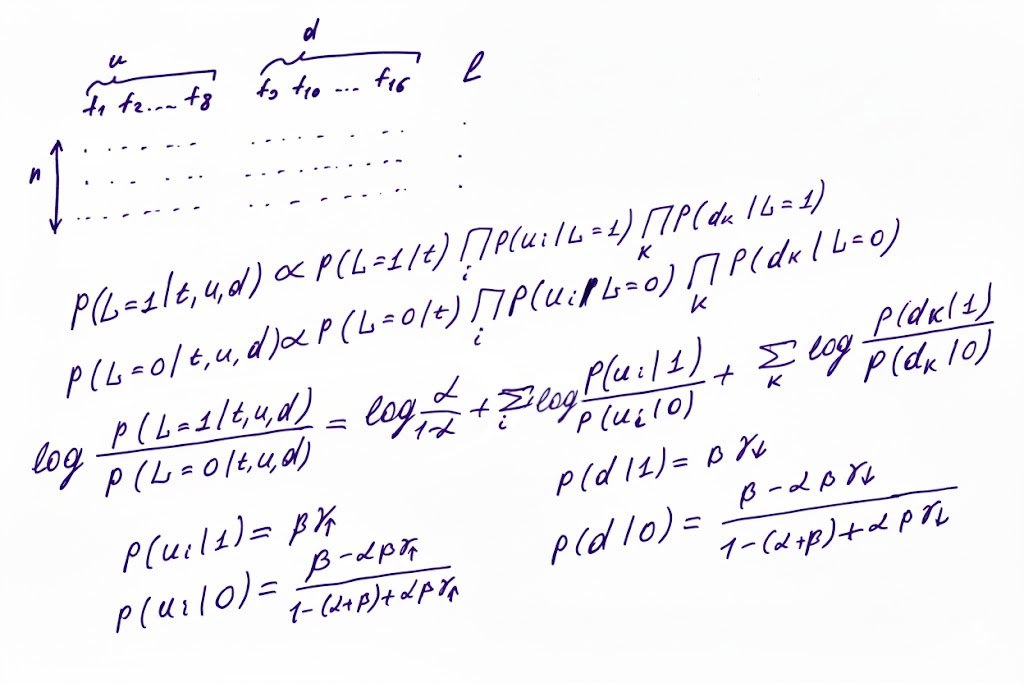 u d
t₁ t₂ .... t₈ t₉ t₁₀ ... t₁₆ l
n
P(L=1/t,u,d) ∝ P(L=1/t) ∏ᵢ P(uᵢ/L=1) ∏ₖ P(dₖ/L=1)
P(L=0/t,u,d) ∝ P(L=0/t) ∏ᵢ P(uᵢ/L=0) ∏ₖ P(dₖ/L=0)
log P(L=1/t,u,d) / P(L=0/t,u,d) = log α/(1-α) + Σᵢ log P(uᵢ/1) / P(uᵢ/0) + Σₖ log P(dₖ/1) / P(dₖ/0)
P(uᵢ/1) = βγ↑
P(uᵢ/0) = (β-αβγ↑) / (1-(α+β)+αβγ↑)
P(d/1) = βγ↓
P(d/0) = (β-αβγ↓) / (1-(α+β)+αβγ↓)